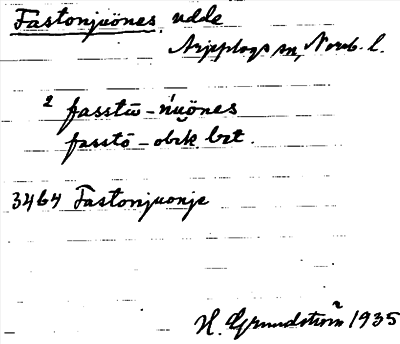 Fastonjuönes, udde
Arjeplogs sn, Norrb. l.
2 fasstū-ńu̯önes
fasstō- obek. bet.
3464 Fastonjuonje
H. Grundström 1935